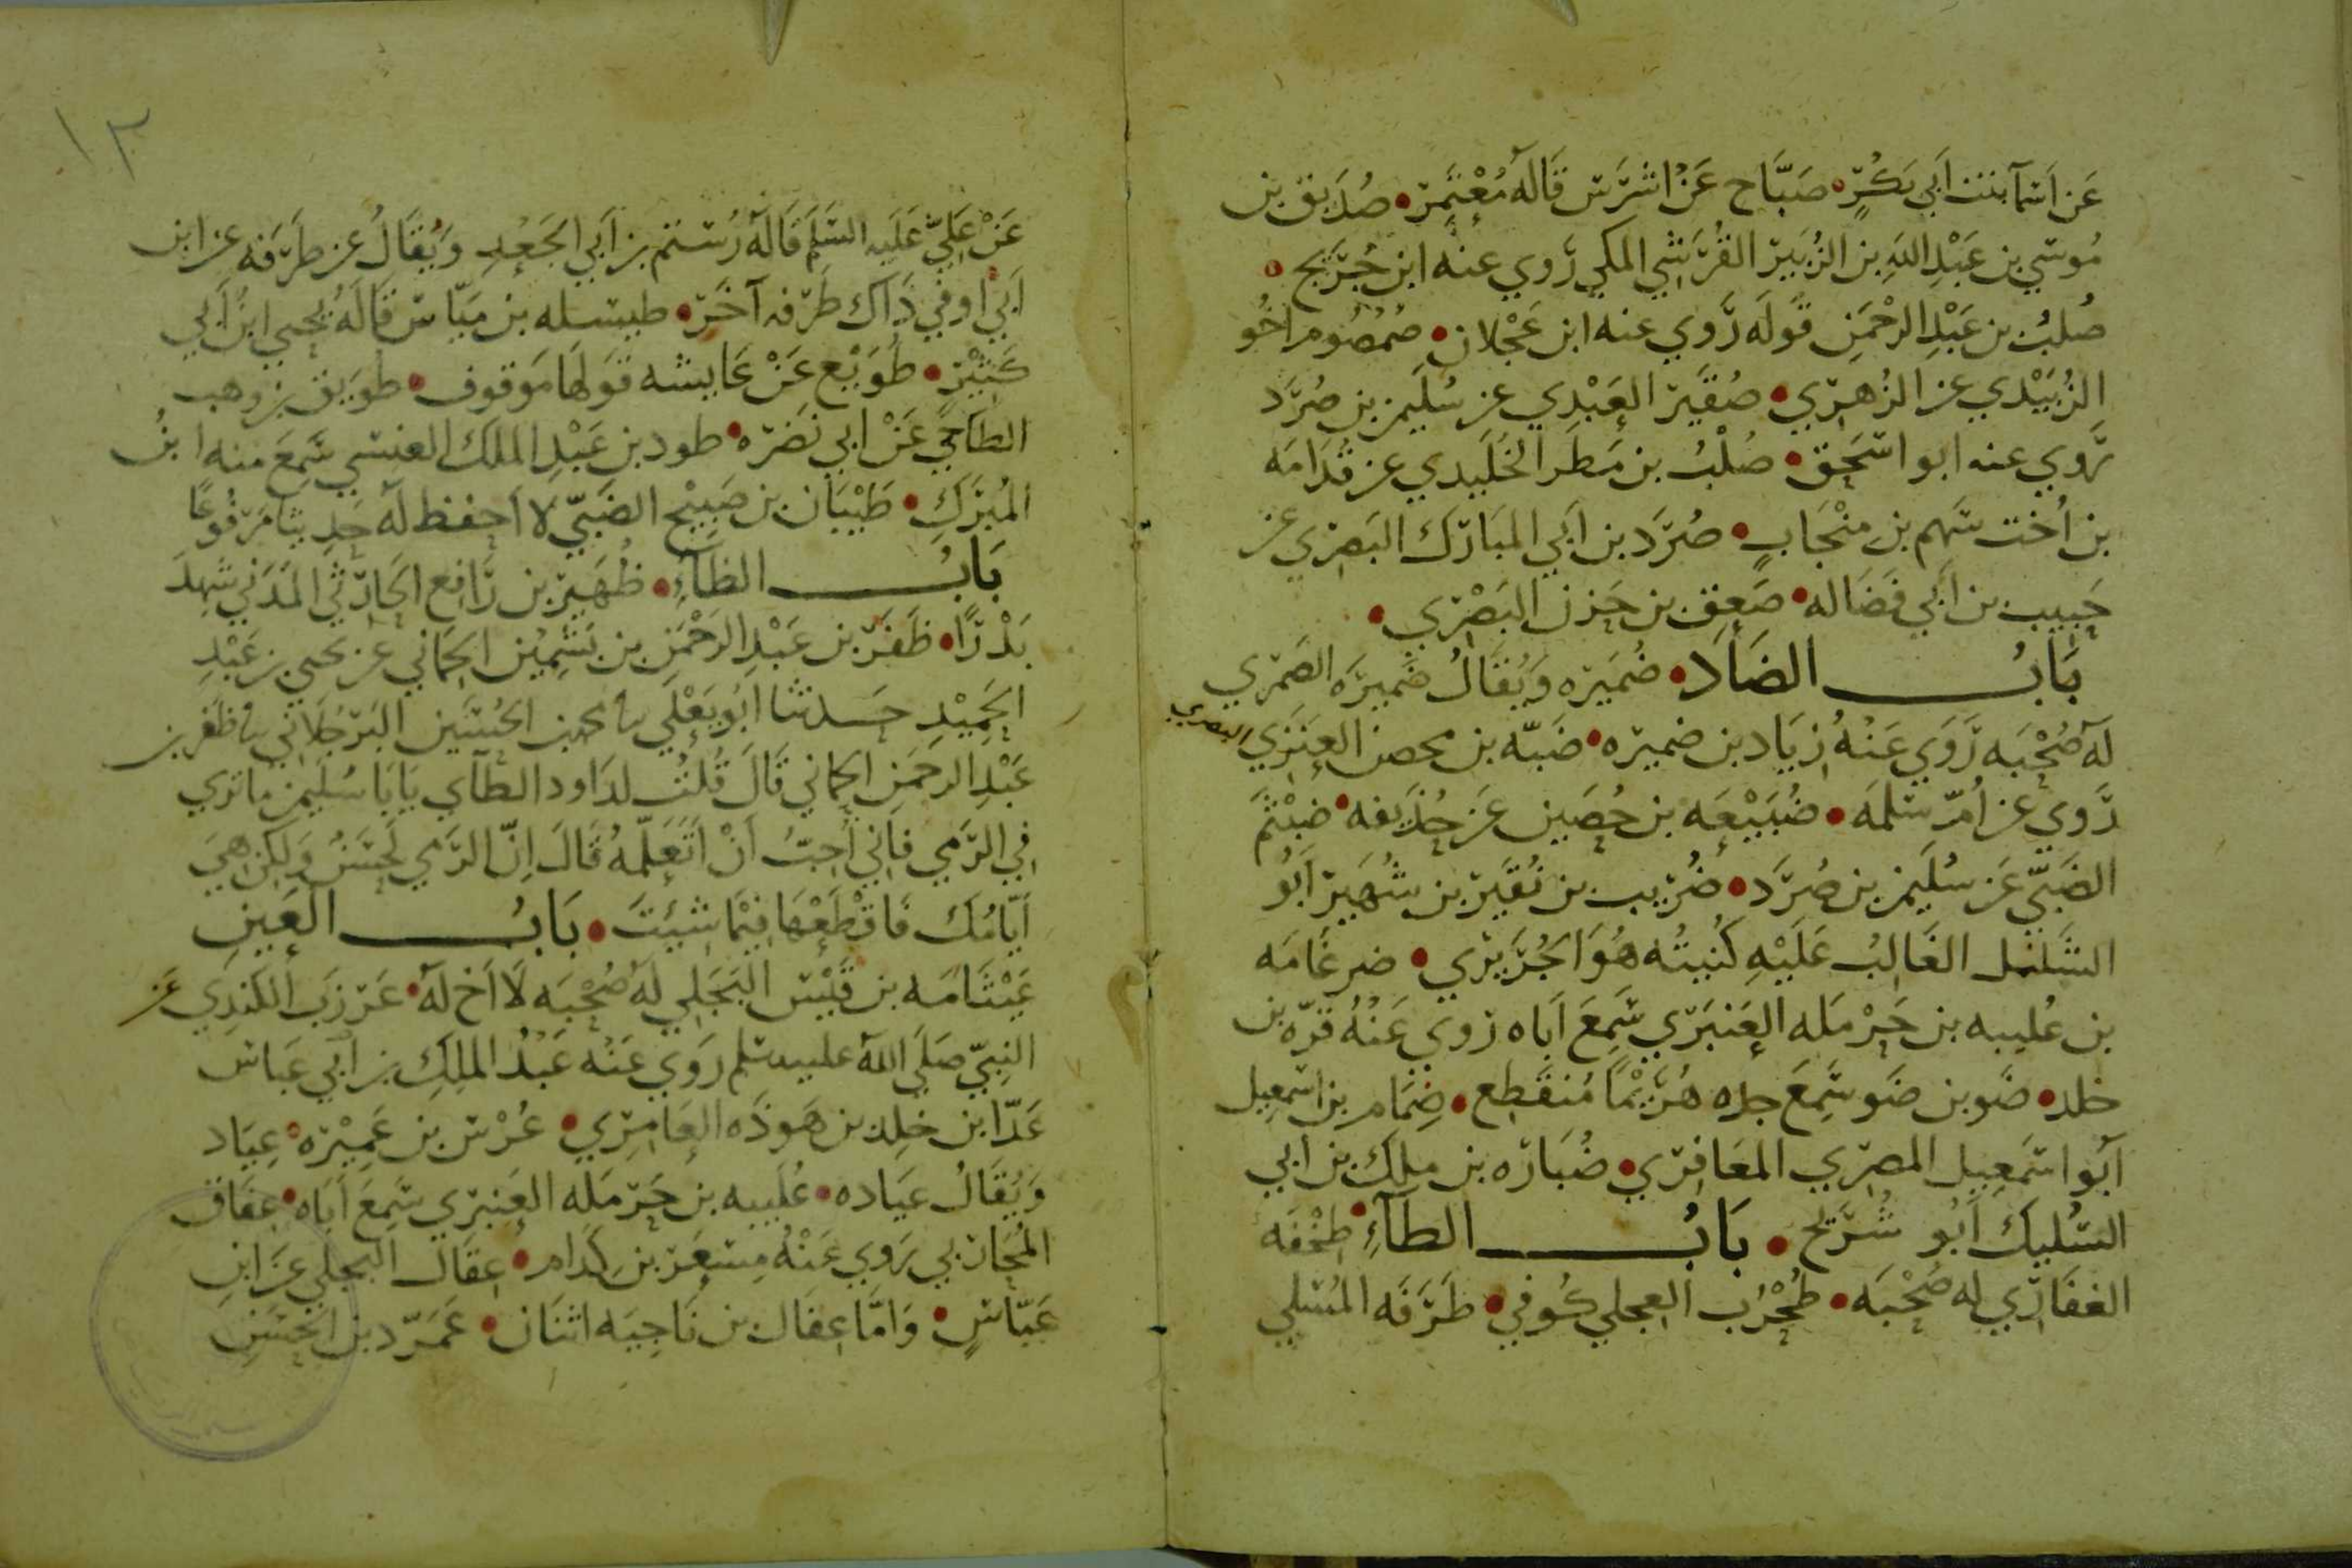 عَن اَسْمآ بنت اَبي بَكْرٍ • صَبَّاح عَنْ اشْرَس قَالَهُ مُعْتَمِر • صُدَيق بن
مُوسَي بن عَبْدِ اللهِ بن الزُبَيَر القُرَشي المكي رَوي عنه ابن جُرَيج •
صُلبُ بن عَبْدِ الرحْمَن قَوله رَوي عنه ابن عَجْلان • صُمصُوم اخُو
الزُبَيْدي عن الزُهري • صُقَير العَبْدي عن سُلَيمن بن صُرَد
رَوي عنه ابو اسحَق • صُلْبُ بن مَطَر الخُلَيدي عن قُدَامَه
بن اُخت سَهم بن منْجَابٍ • صُرَد بن اَبي المبَارَك البَصري عن
حَبِيب بن اَبي فَضَاله • صَعِق بن حَزن البَصْري •
بَابُ الضَاد • ضُمَيَره وَيُقَالُ ضَميرَه الضَمري
لَهُ صُحْبَه رَوَي عَنْهُ زيَاد بن ضميره • ضَبّه بن محصن العَنَزي البصري
رَوي عن اُم سَلمَه • ضُبَيْعَه بن حُصَين عَن حُذَيفه • ضَيْثَم
الضَبّي عَن سُلَيمن بن صُرَد • ضُرَيب بن نُقَير بن شُهَير اَبُو
الشَليْل الغَالِبُ عَلَيْهِ كُنيتُه هُوَ الجُرَيري • ضرغَامَه
بن عُليبه بن حَرْمَله العَنبَري سَمِعَ اَباه روي عَنْهُ قرّه بن
خلد • ضَو بن ضَو سَمِعَ جده هُرَيْمًا مُنقَطِع • ضِمَام بن اسَمعِيل
اَبو اسَمعِيل المصري المعَافري • ضُبَارَه بن ملِك بن ابي
السُليك اَبُو شُرَيح • بَابُ الطآءِ • طخْفَه
الغفَاري له صُحْبَه • طُحْرُب العجلي كُوفي • طَرَفَه المُسْلي
١٣
عَنْ عَلِيّ عَلَيه السَلم قَالَهُ رُستم بن اَبي الجَعْدِ وَيُقَالُ عن طَرَفه عن ابن
اَبي اوفي ذَاك طَرَفه آخَر • طيسَله بن مَيّاس قَالَهُ يَحيي ابنُ اَبي
كَثِيْر • طُوَيْع عَنْ عَايشه قَولهَا مَوقوف • طوَيق بن وهب
الطاحي عَنْ ابي نَضَره • طود بن عَبْدِ الملك العنسي سَمِعَ منه ابنُ
المُبَرَك • طَيْبَان بن صَبِيْح الضَبّي لا احفظ له حَديثا مَرفُوعًا
بَابُ الظآءِ • ظُهَير بن رَافع الحَارثي المدَني شَهِدَ
بَدْرًا • ظَفَر بن عَبْدِ الرَحْمَن بن بَشمين الحَماني عن يحيي بن عَبْدِ
الحَمِيْدِ حَدثنا اَبُو يَعْلي نا محمد بن الحُسَين البَرجُلاني نا ظَفر بن
عَبْدِ الرحمَن الحماني قَالَ قُلتُ لدَاود الطآي يَابَا سُلَيمن ما تري
في الرَمي فَاني اُحِبُ اَنْ اَتَعَلّمهُ قَالَ اِنّ الرَمي لَحَسَنُ وَلكن هيَ
اَيّامُك فَاقْطَعْهَا فيْمَا شيئَتَ • بَابُ العَيْن
عَيْثَامَه بن قَيْس البَجَلي لَهُ صُحْبَه لَا اَخ لهُ • عَرزَب الكندي عَن
النبيّ صَلي الله عليه وسَلم رَوَي عَنْه عَبْدُ المِلك بن اَبي عَباس
عَدّا ابن خلد بن هَوذَه العَامري • عُرْس بن عَمِيْره • عيَاد
وَيُقَالُ عيَاده • عُلَيبه بن حَرمَله العَنبَري سَمِعَ اَبَاه • عفَاق
المُحَاربي رَوي عَنْهُ مِسعَر بن كدَام • عِقَال البَجَلي عَن ابنِ
عَبّاسٍ • وَامَّا عِقال بن نَاجِيَه اثنَان • عَمَرّد بن الحَسَن